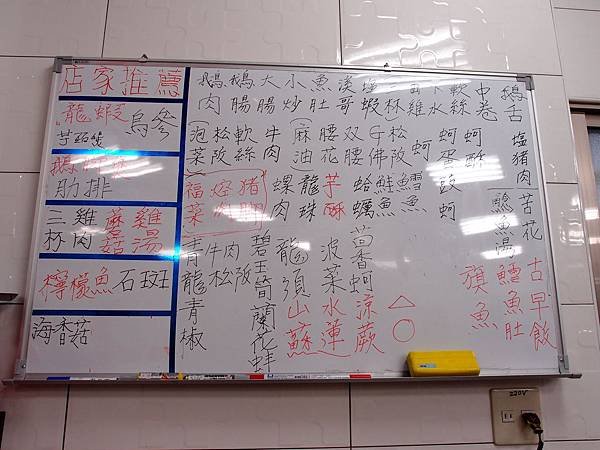 店家推薦
龍蝦 烏參
芋頭
肋排
三杯 雞肉 蘑菇 雞湯
檸檬魚 石斑
海香菇
鵝肉
鵝腸
大腸
小炒
魚肚
溪哥
塩蝦
軟絲
中卷
鵝舌
泡菜
松阪
軟絲
牛肉
麻油
腰花
双腰
松阪
蚵
蚵蛋
蚵豉
蚵酥
蚵
塩猪肉
苦花
福菜
螺肉
龍珠
芋酥
蛤蠣
鮭魚
鱈魚
鯰魚湯
青龍
牛肉
松阪
青椒
碧玉筍
蘭花蚌
龍須
山蘇
波菜
水蓮
茴香蚵
涼蕨
△
○
旗魚
鱈魚肚
古早飯
220V